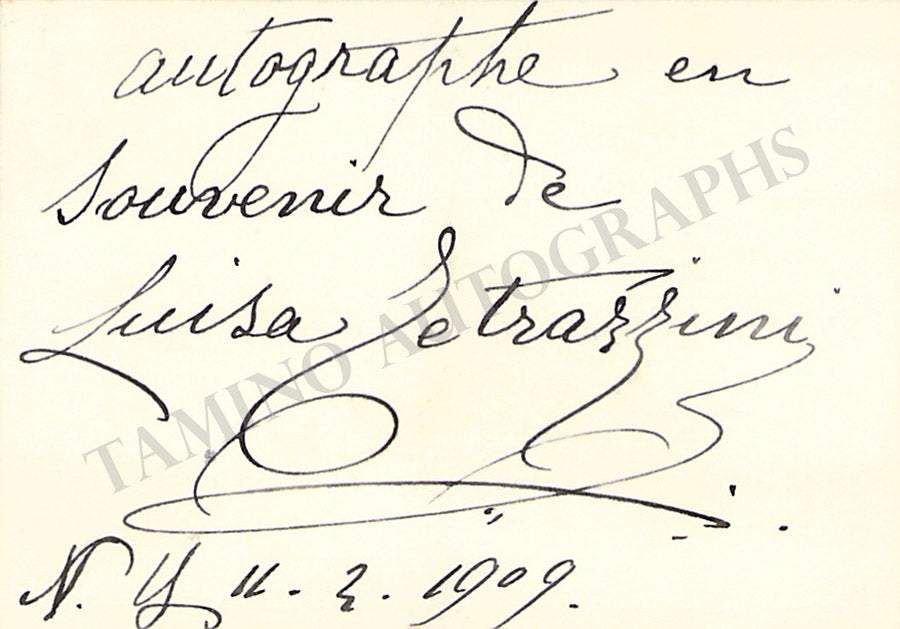 autographe en
souvenir de
Luisa Tetrazzini
N. Y 11 - 2 . 1909.
TAMINO AUTOGRAPHS